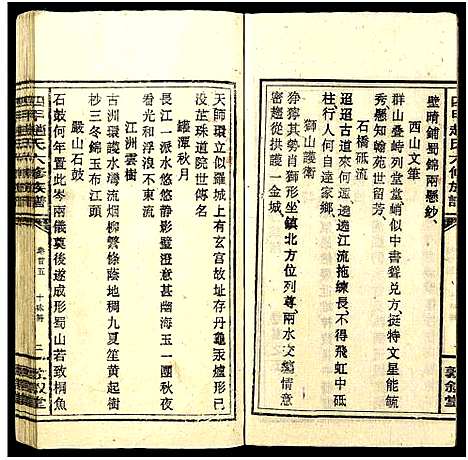 壁晴鋪蜀錦兩懸紗
西山文筆
群山疊峙列堂堂蛸似中書聳兌方挺特文星能毓
秀懸知翰苑世留芳
石橋砥流
迢迢古道來何遠遶江流拖練長不得飛虹中砥
柱行人何自達家鄉
獅山護衛
猙獰其勢肖獅形坐鎮北方位列尊兩水交縈情意
密趨從拱護一金城
敦敘堂
天師環立似羅城上有玄宮故址存丹竈汞爐形已
沒芷珠道院世傳名
鑵潭秋月
長江一派水悠悠靜影璧澄意甚幽海玉一團秋夜
看光和浮浪不東流
江洲雲樹
古洲環護水灣流烟柳繁條蔭地稠九夏笙黄起樹
杪三冬錦玉布江頭
嚴山石鼓
石鼓何年置此岑兩儀奠後遂成形蜀山若致桐魚
趙氏六修族譜
卷首五
二
敦敘堂